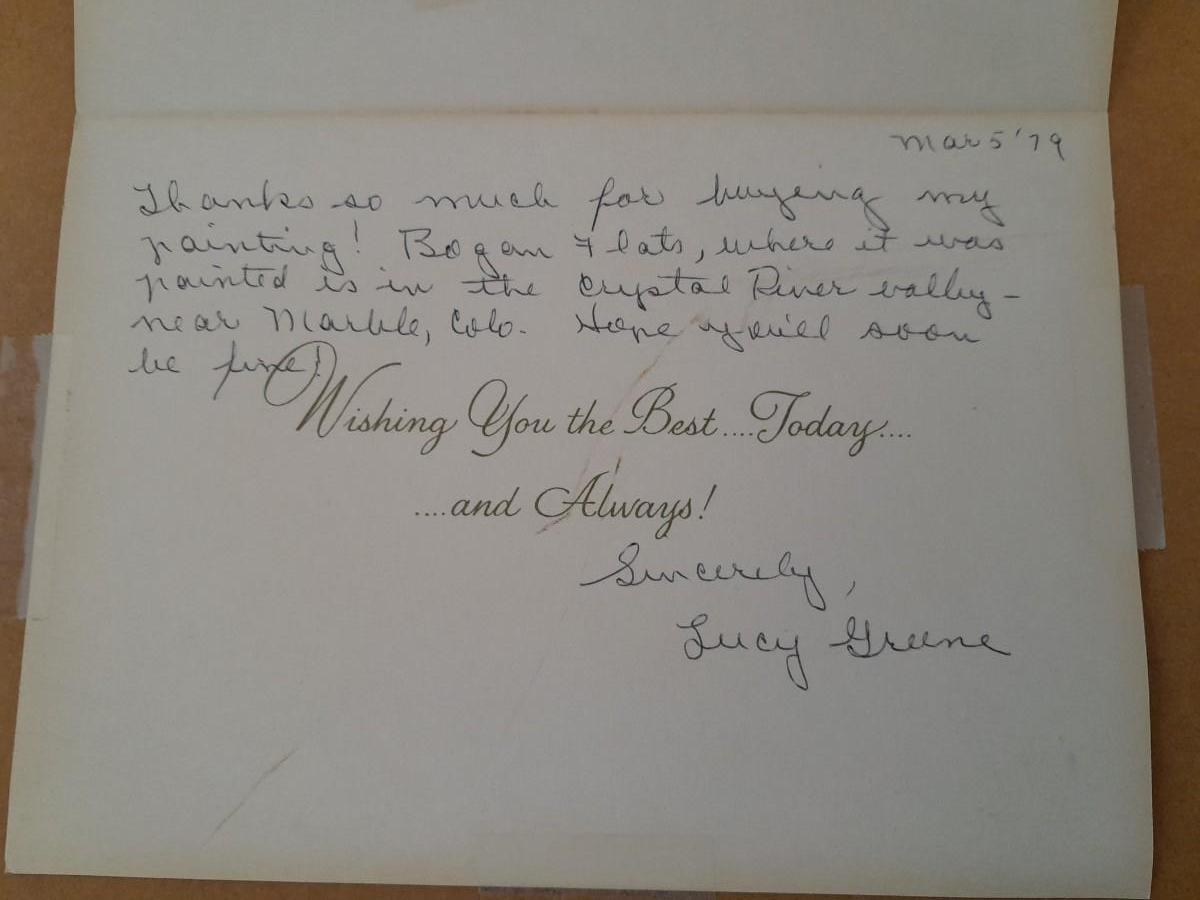 Mar 5 '79
Thanks so much for buying my
painting! Bogan Flats, where it was
painted is in the Crystal River valley -
near Marble, Colo. Hope you'll soon
be fine!
Wishing You the Best....Today....
....and Always!
Sincerely,
Lucy Greene